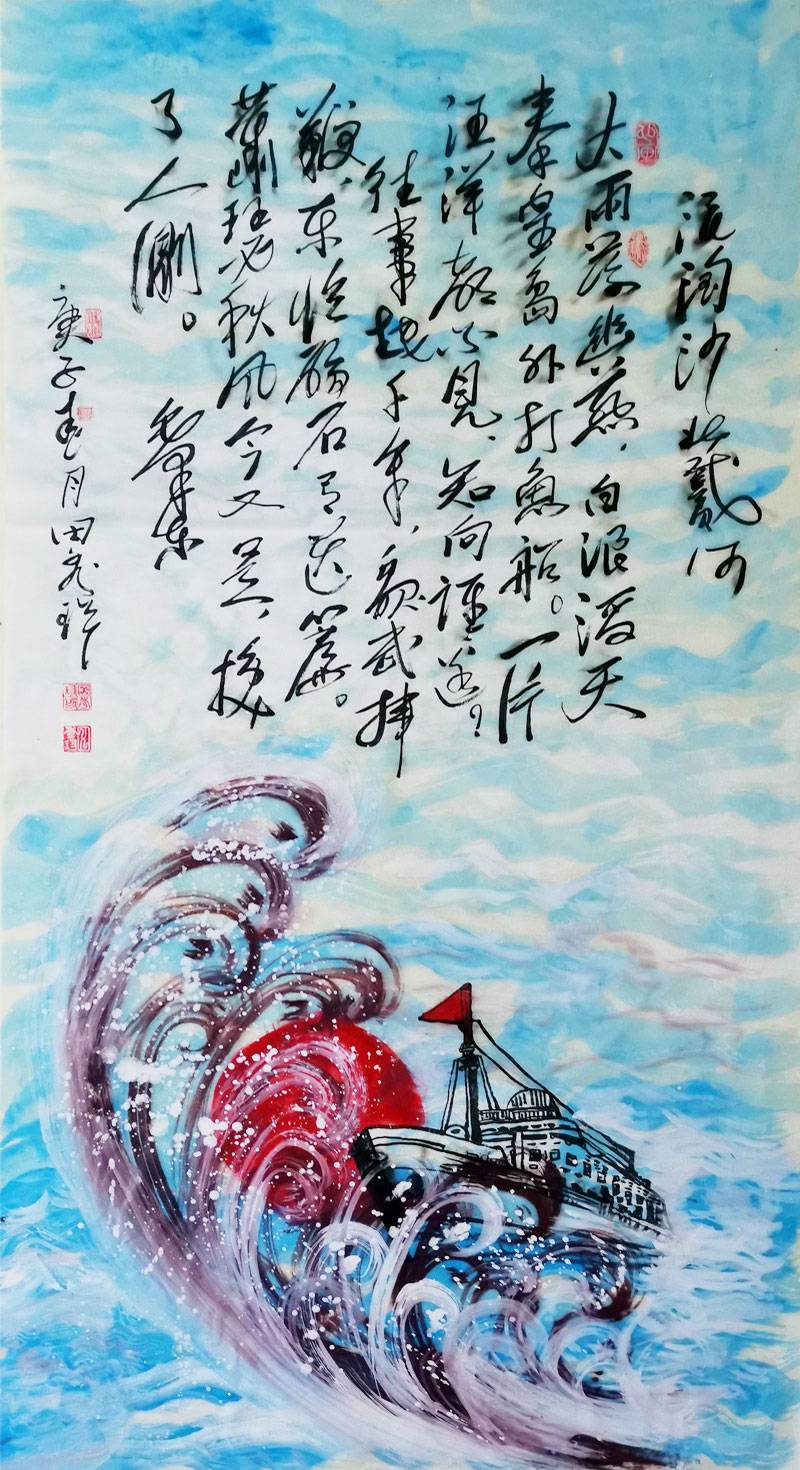 浪淘沙北戴河
大雨落幽燕，白浪滔天
秦皇岛外打鱼船。一片
汪洋都不见，知向谁边？
往事越千年，魏武挥
鞭，东临碣石有遗篇。
萧瑟秋风今又是，换
了人间。
毛泽东
庚子春月田